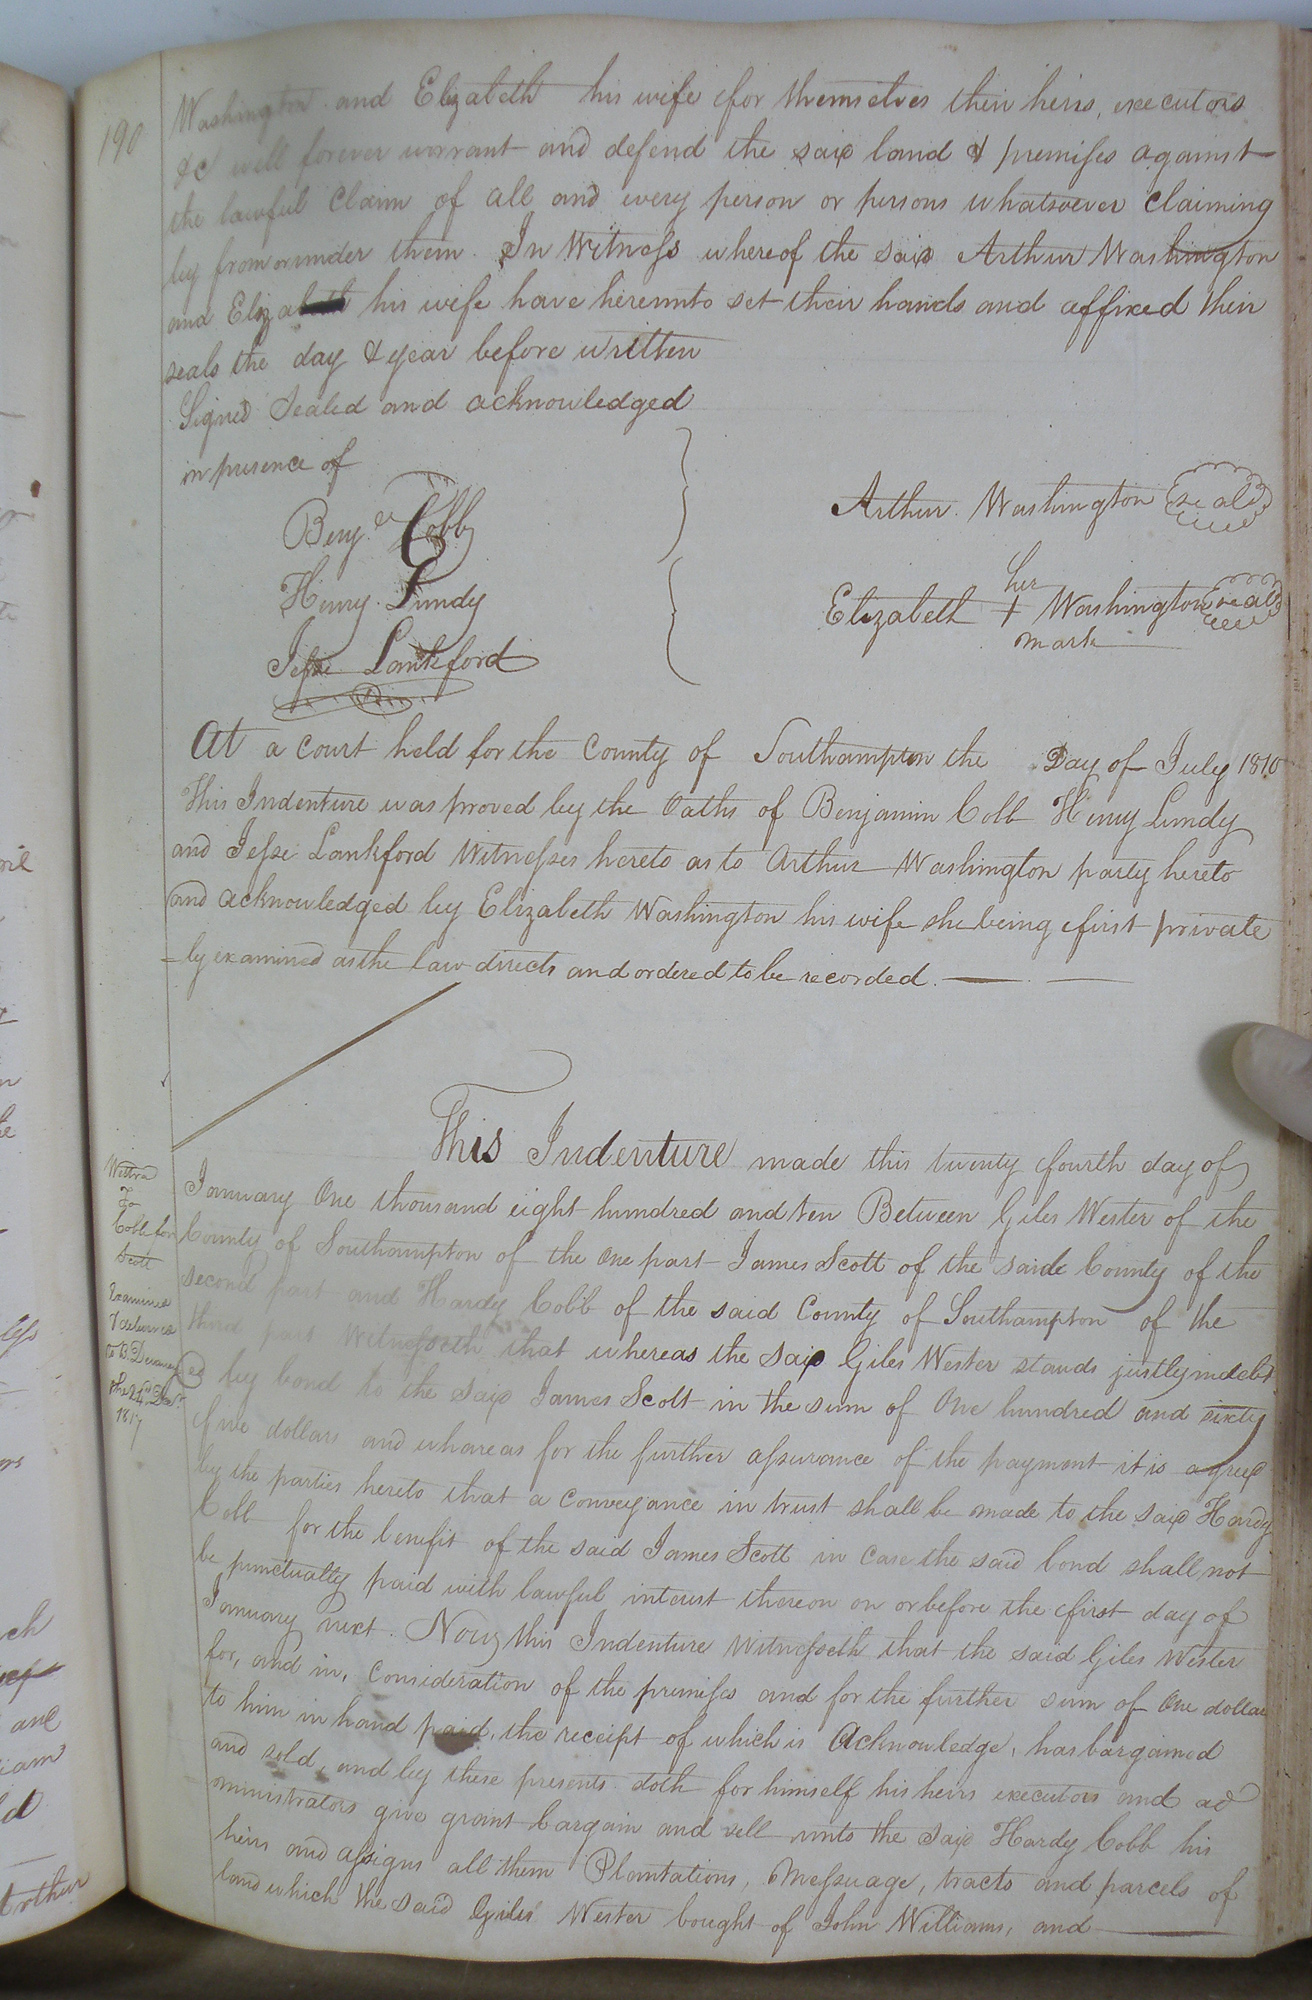 190
Washington and Elizabeth his wife for themselves their heirs, executors
&c will forever warrant and defend the said land & premises against
the lawful Claim of all and every person or persons whatsoever claiming
by from or under them. In Witness whereof the said Arthur Washington
and Elizabeth his wife have hereunto set their hands and affixed their
seals the day & year before written
Signed Sealed and acknowledged
in presence of
Benj.a Cobb
Henry Lundy
Jesse Lankford
Arthur Washington seal
her
Elizabeth + Washington seal
mark
At a court held for the County of Southampton the Day of July 1810
This Indenture was proved by the Oaths of Benjamin Cobb Henry Lundy
and Jesse Lankford Witnesses hereto as to Arthur Washington party hereto
and acknowledged by Elizabeth Washington his wife she being first private
-ly examined as the law directs and ordered to be recorded.
To
Cobb for
Scott
Examined
& delivered
to B.
the 24th
1817
This Indenture made this twenty fourth day of
January One thousand eight hundred and ten Between Giles Wester of the
County of Southampton of the one part James Scott of the said County of the
second part and Hardy Cobb of the said County of Southampton of the
third part Witnesseth that whereas the said Giles Wester stands justly indebt
ed by bond to the said James Scott in the sum of One hundred and sixty
five dollars and whareas for the further assurance of the payment it is agreed
by the parties hereto that a conveyance in trust shall be made to the said Hardy
Cobb for the benefit of the said James Scott in case the said bond shall not
be punctually paid with lawful interest thereon on or before the first day of
January next. Now this Indenture Witnesseth that the said Giles Wester
for, and in, consideration of the premises and for the further sum of One dollar
to him in hand paid, the receipt of which is Acknowledge, has bargained
and sold, and by these presents doth for himself his heirs executors and ad
ministrators give grant bargain and sell unto the said Hardy Cobb his
heirs and assigns all them Plantations, Messuage, tracts and parcels of
land which the said Giles Wester bought of John Williams, and